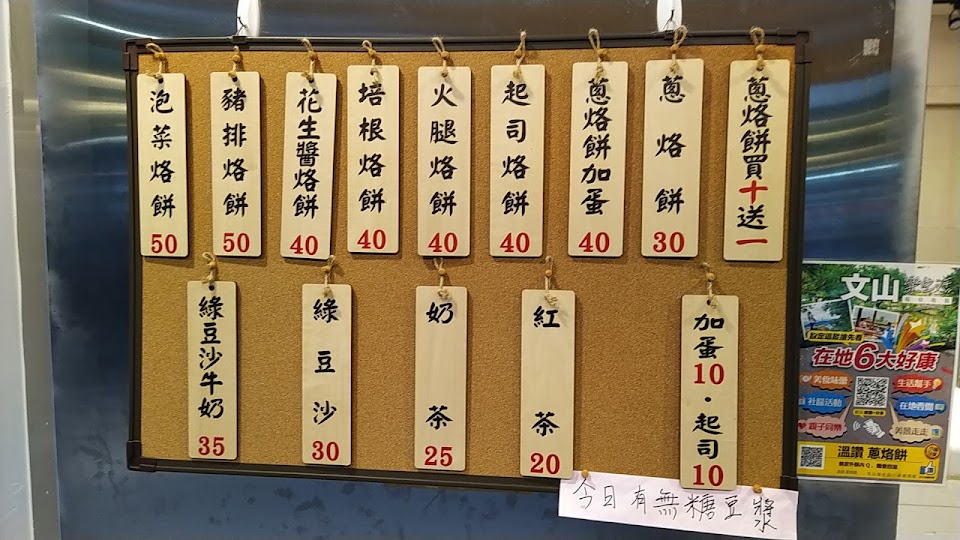 蔥烙餅買十送一
蔥烙餅
30
蔥烙餅加蛋
40
起司烙餅
40
火腿烙餅
40
培根烙餅
40
花生醬烙餅
40
豬排烙餅
50
泡菜烙餅
50
加蛋10・起司10
紅茶
20
奶茶
25
綠豆沙
30
綠豆沙牛奶
35
今日有無糖豆漿
文山
在地6大好康
美假味蕾
生活幫手
社區活動
在地香聞
親子同樂
美景走走
溫讚 蔥烙餅